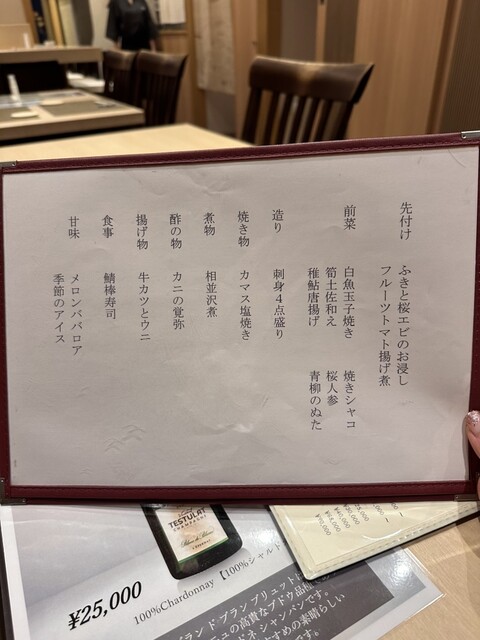 先付け ふきと桜エビのお浸し
フルーツトマト揚げ煮
前菜 白魚玉子焼き 焼きシャコ
筍土佐和え 桜人参
稚鮎唐揚げ 青柳のぬた
造り 刺身4点盛り
焼き物 カマス塩焼き
煮物 相並沢煮
酢の物 カニの覚弥
揚げ物 牛カツとウニ
食事 鯖棒寿司
甘味 メロンババロア
季節のアイス
TESTULAT
CHAMPAGNE
Blanc de Blancs
¥25,000
100%Chardonnay【100%シャルド
ブラン ド ブラン ブリュット
の高貴なブドウ品種
ンヌ シャンパンです。
すすめの素晴らしい
です。